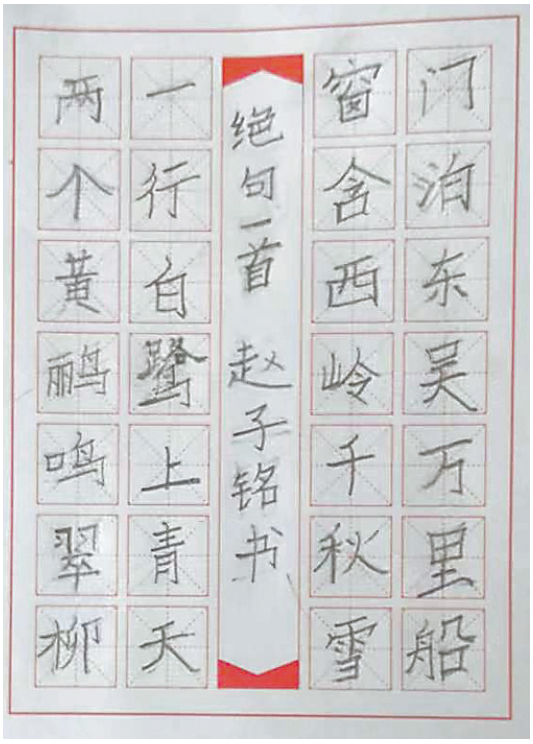 两个黄鹂鸣翠柳
一行白鹭上青天
绝句一首 赵子铭书
窗含西岭千秋雪
门泊东吴万里船